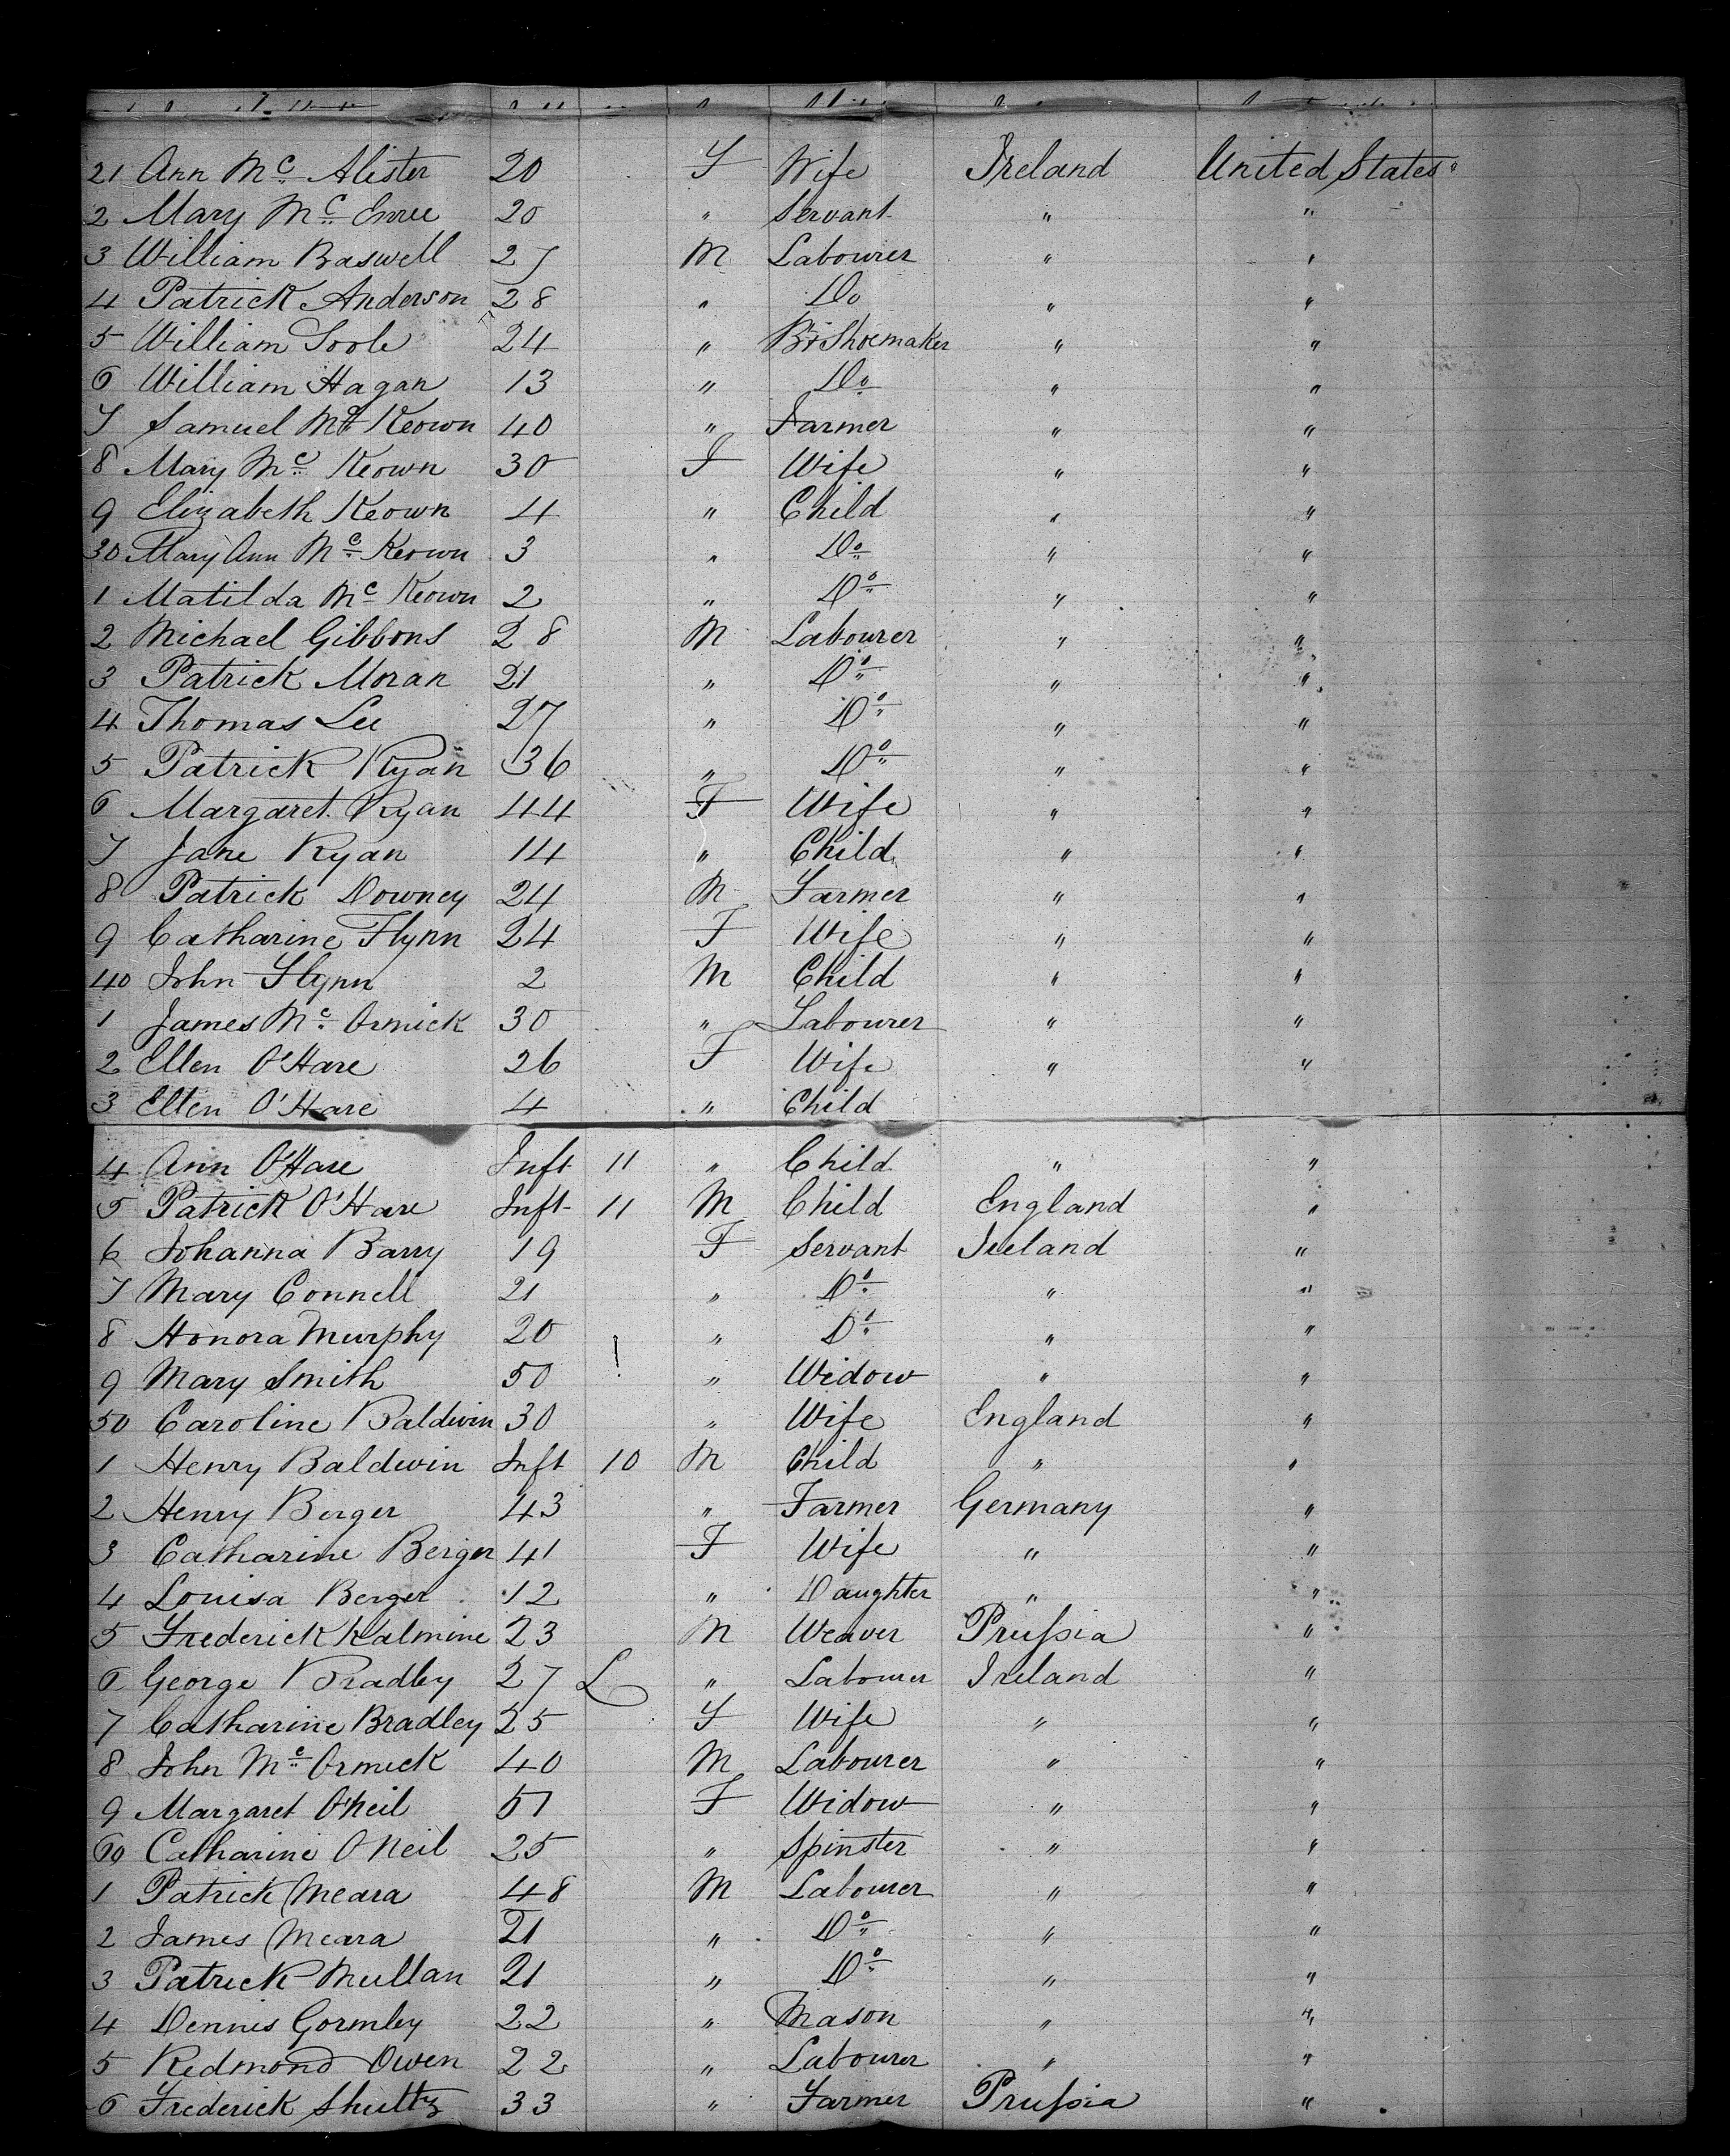 21 Ann Mc Alister 20 F Wife Ireland United States
2 Mary Mc Enree 20 " Servant " "
3 William Baswell 27 M Labourer " "
4 Patrick Anderson 28 " Do " "
5 William Toole 24 " Bt Shoemaker " "
6 William Hagan 13 " Do " "
7 Samuel Mc Keown 40 " Farmer " "
8 Mary Mc Keown 30 F Wife " "
9 Elizabeth Keown 4 " Child " "
30 Mary Ann Mc Keown 3 " Do " "
1 Matilda Mc Keown 2 " Do " "
2 Michael Gibbons 28 M Labourer " "
3 Patrick Moran 21 " Do " "
4 Thomas Lee 27 " Do " "
5 Patrick Ryan 36 " Do " "
6 Margaret Ryan 44 F Wife " "
7 Jane Ryan 14 " Child " "
8 Patrick Downey 24 M Farmer " "
9 Catharine Flynn 24 F Wife " "
40 John Flynn 2 M Child " "
1 James Mc Ormick 30 " Labourer " "
2 Ellen O'Hare 26 F Wife " "
3 Ellen O'Hare 4 " Child
4 Ann O'Hare Inft 11 " Child " "
5 Patrick O'Hare Inft 11 M Child England "
6 Johanna Barry 19 F Servant Ireland "
7 Mary Connell 21 " Do " "
8 Honora Murphy 20 " Do " "
9 Mary Smith 50 " Widow " "
50 Caroline Baldwin 30 " Wife England "
1 Henry Baldwin Inft 10 M Child " "
2 Henry Berger 43 " Farmer Germany "
3 Catharine Berger 41 F Wife " "
4 Louisa Berger 12 " Daughter " "
5 Frederick Kalmine 23 M Weaver Prussia "
6 George Bradley 27 L " Labourer Ireland "
7 Catharine Bradley 25 F Wife " "
8 John Mc Ormick 40 M Labourer " "
9 Margaret O'Neil 51 F Widow " "
60 Catharine O Neil 25 " Spinster " "
1 Patrick Meara 48 M Labourer " "
2 James Meara 21 " Do " "
3 Patrick Mullan 21 " Do " "
4 Dennis Gormley 22 " Mason " "
5 Redmond Owen 22 " Labourer " "
6 Frederick Shultz 33 " Farmer Prussia "